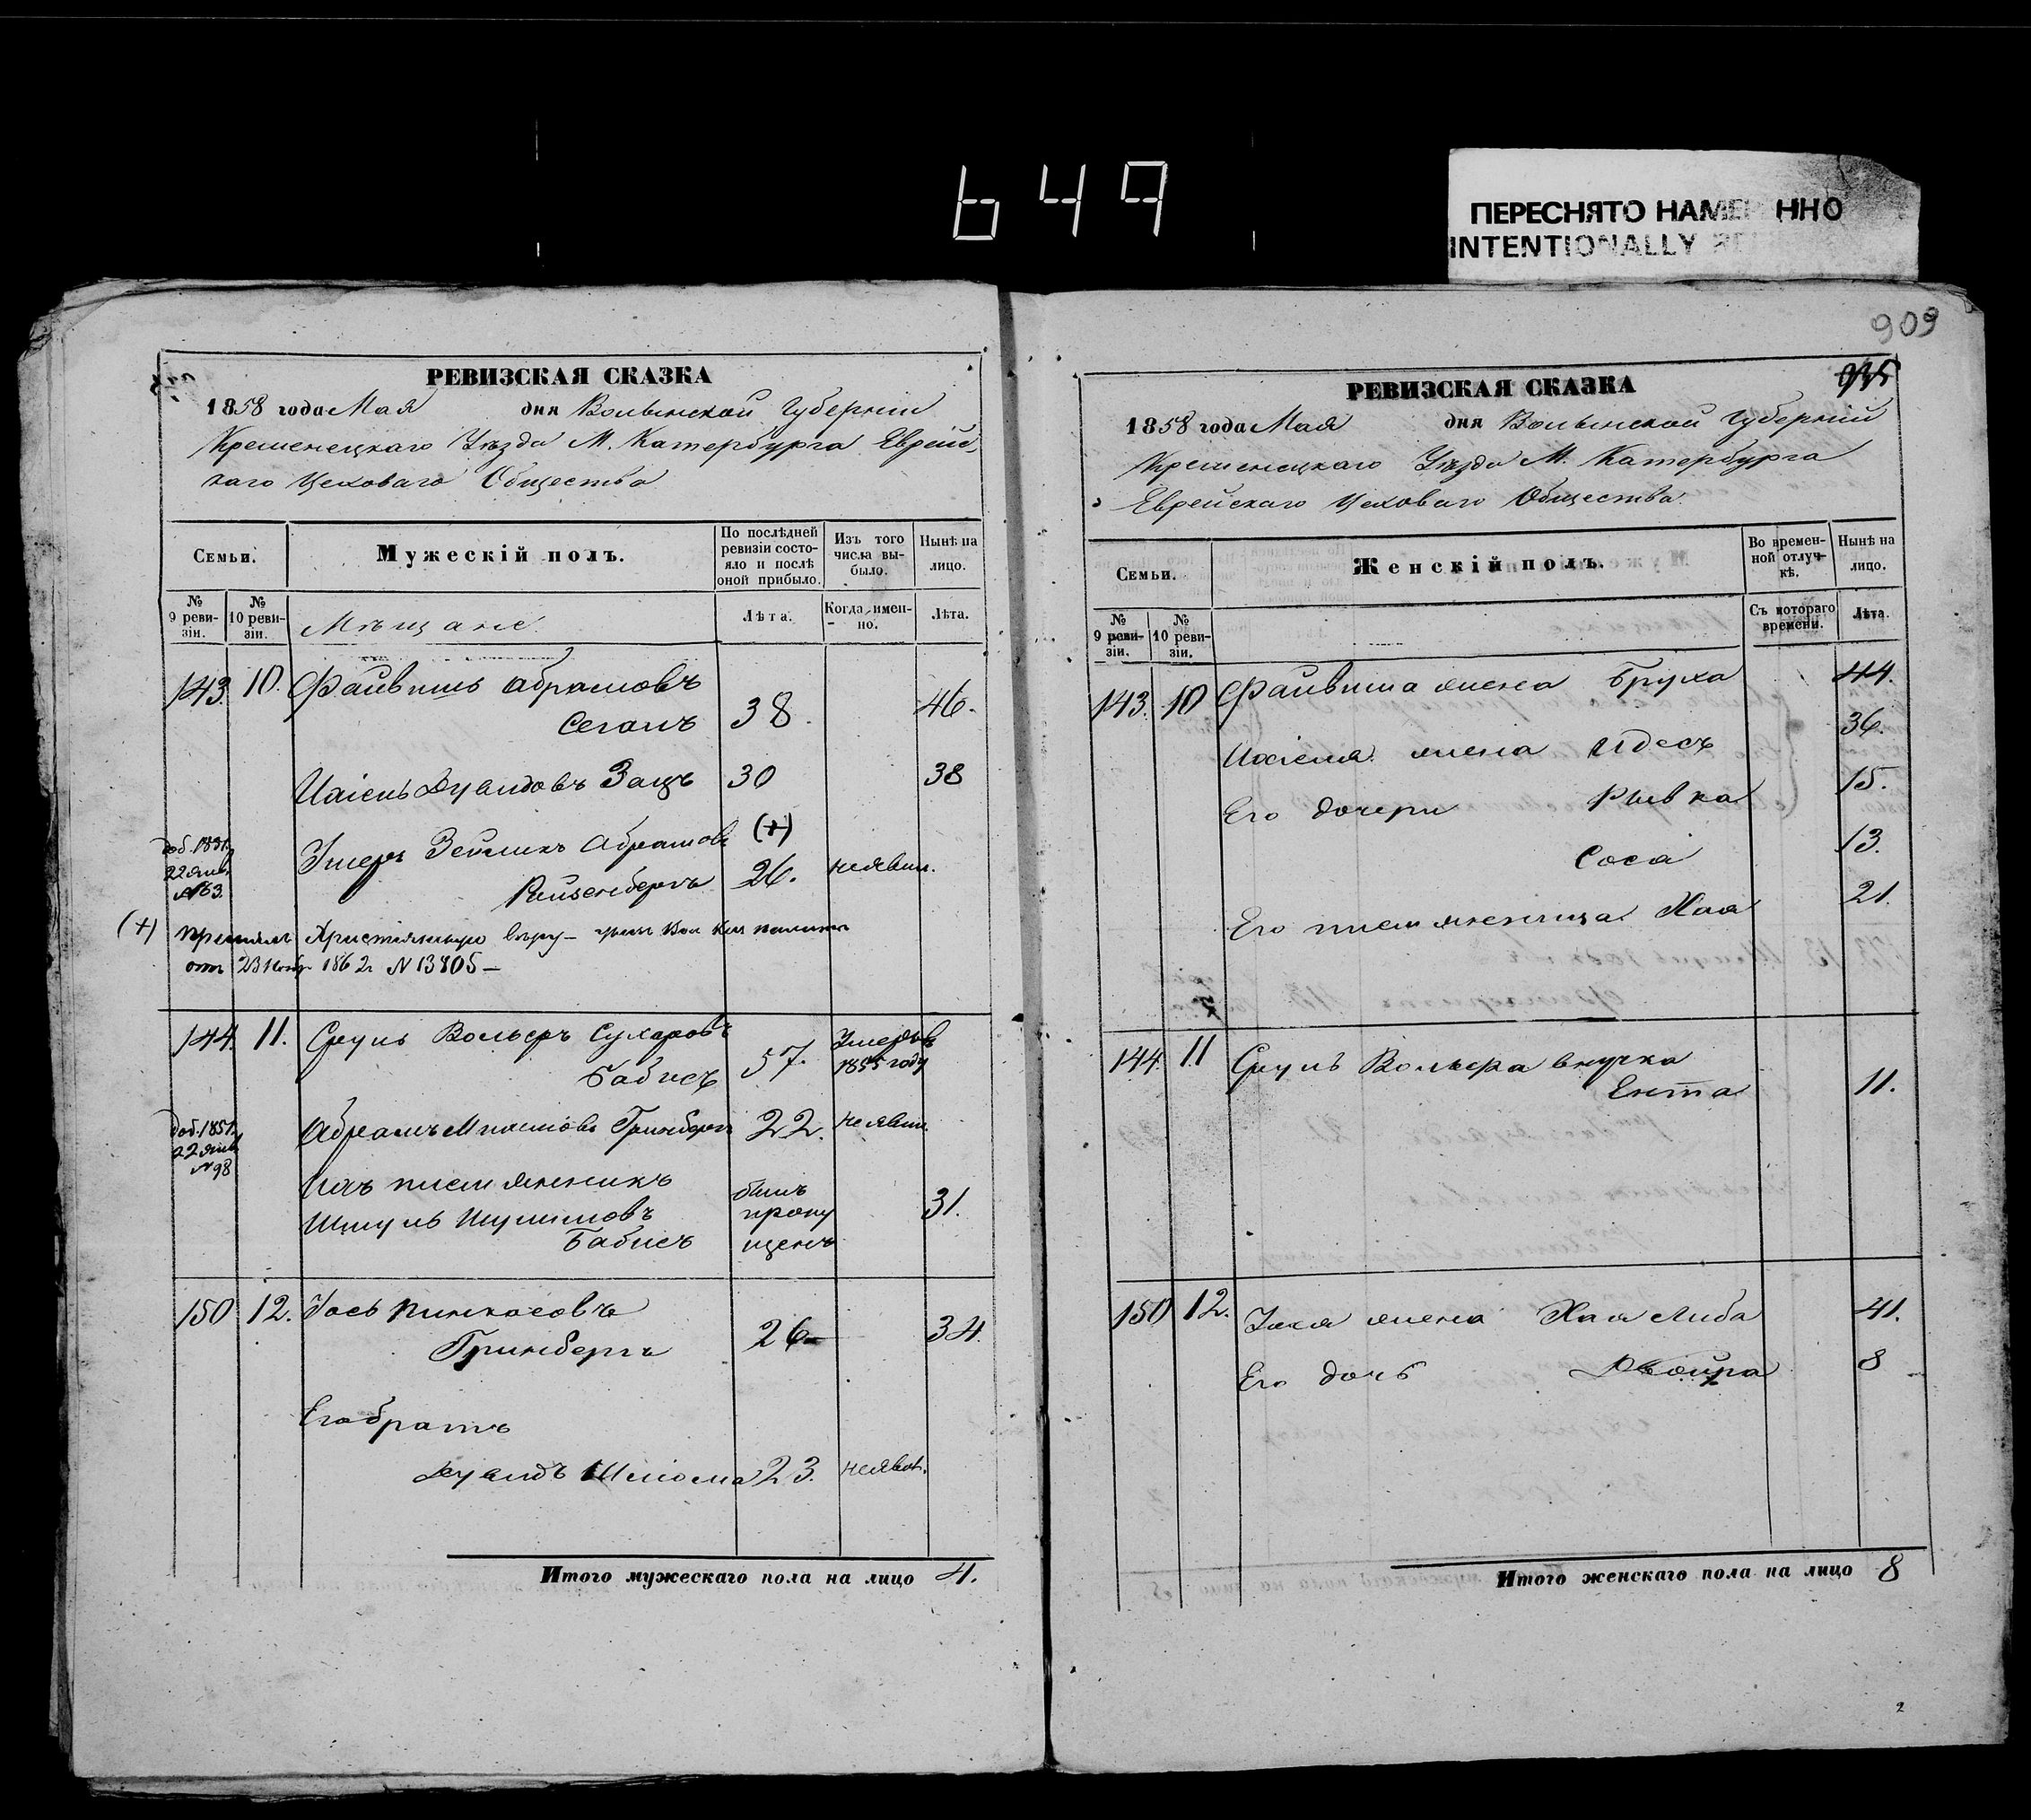 649
ПЕРЕСНЯТО НАМЕР ННО
INTENTIONALLY RE
РЕВИЗСКАЯ СКАЗКА
1858 года Мая дня Волынской Губерніи
Кременецкаго Уѣзда М. Катербурга Еврейс
каго Цеховаго Общества
Семьи.
Мужескій полъ.
По послѣдней ревизіи состояло и послѣ оной прибыло.
Изъ того числа выбыло.
Нынѣ на лицо.
№ 9 ревизіи.
№ 10 ревизіи.
Мѣщане
Лѣта.
Когда именно.
Лѣта.
143. 10. Файвишъ Абрамовъ
Сегалъ 38. 46.
Ихіель Дувидовъ Зацъ 30 38
(+)
22 Янв.
№ 63.
Умеръ Зейликъ Абрамовъ
Райзенбергъ 26. неявил.
(+) Христіянскую вѣру
от 23 Нояб 1862 г № 13805 –
144. 11. Сруль Вольеръ Сухаровъ
Бабисъ 57. Умеръ въ 1855 году
доб. 1851.
22 Янв
№ 98
Абрамъ Гринбергъ 22. неявил.
Ихъ племянникъ
Шмуль Шулимовъ
Бабисъ
былъ пропущенъ
31.
150 12. Іось Пинкасовъ
Гринбергъ 26 34.
Его братъ
Дувидъ Шліома 23. неявил.
Итого мужескаго пола на лицо 4.
909
935
РЕВИЗСКАЯ СКАЗКА
1858 года Мая дня Волынской Губерній
Кременецкаго Уѣзда М. Катербурга
Еврейскаго Цеховаго Общества
Семьи.
Женскій полъ.
Во временной отлучкѣ.
Нынѣ на лицо.
№ 9 ревизіи.
№ 10 ревизіи.
Съ котораго времени.
Лѣта.
143. 10 Файвиша жена Бруха 44.
Ихіеля жена Идесъ 36.
Его дочери Рывка 15.
Соса 13.
Его племянница Хая 21.
144. 11 Сруль Вольера внучка
Ента 11.
150 12. жена Хая Либа 41.
Его дочь Двойра 8
Итого женскаго пола на лицо 8
2